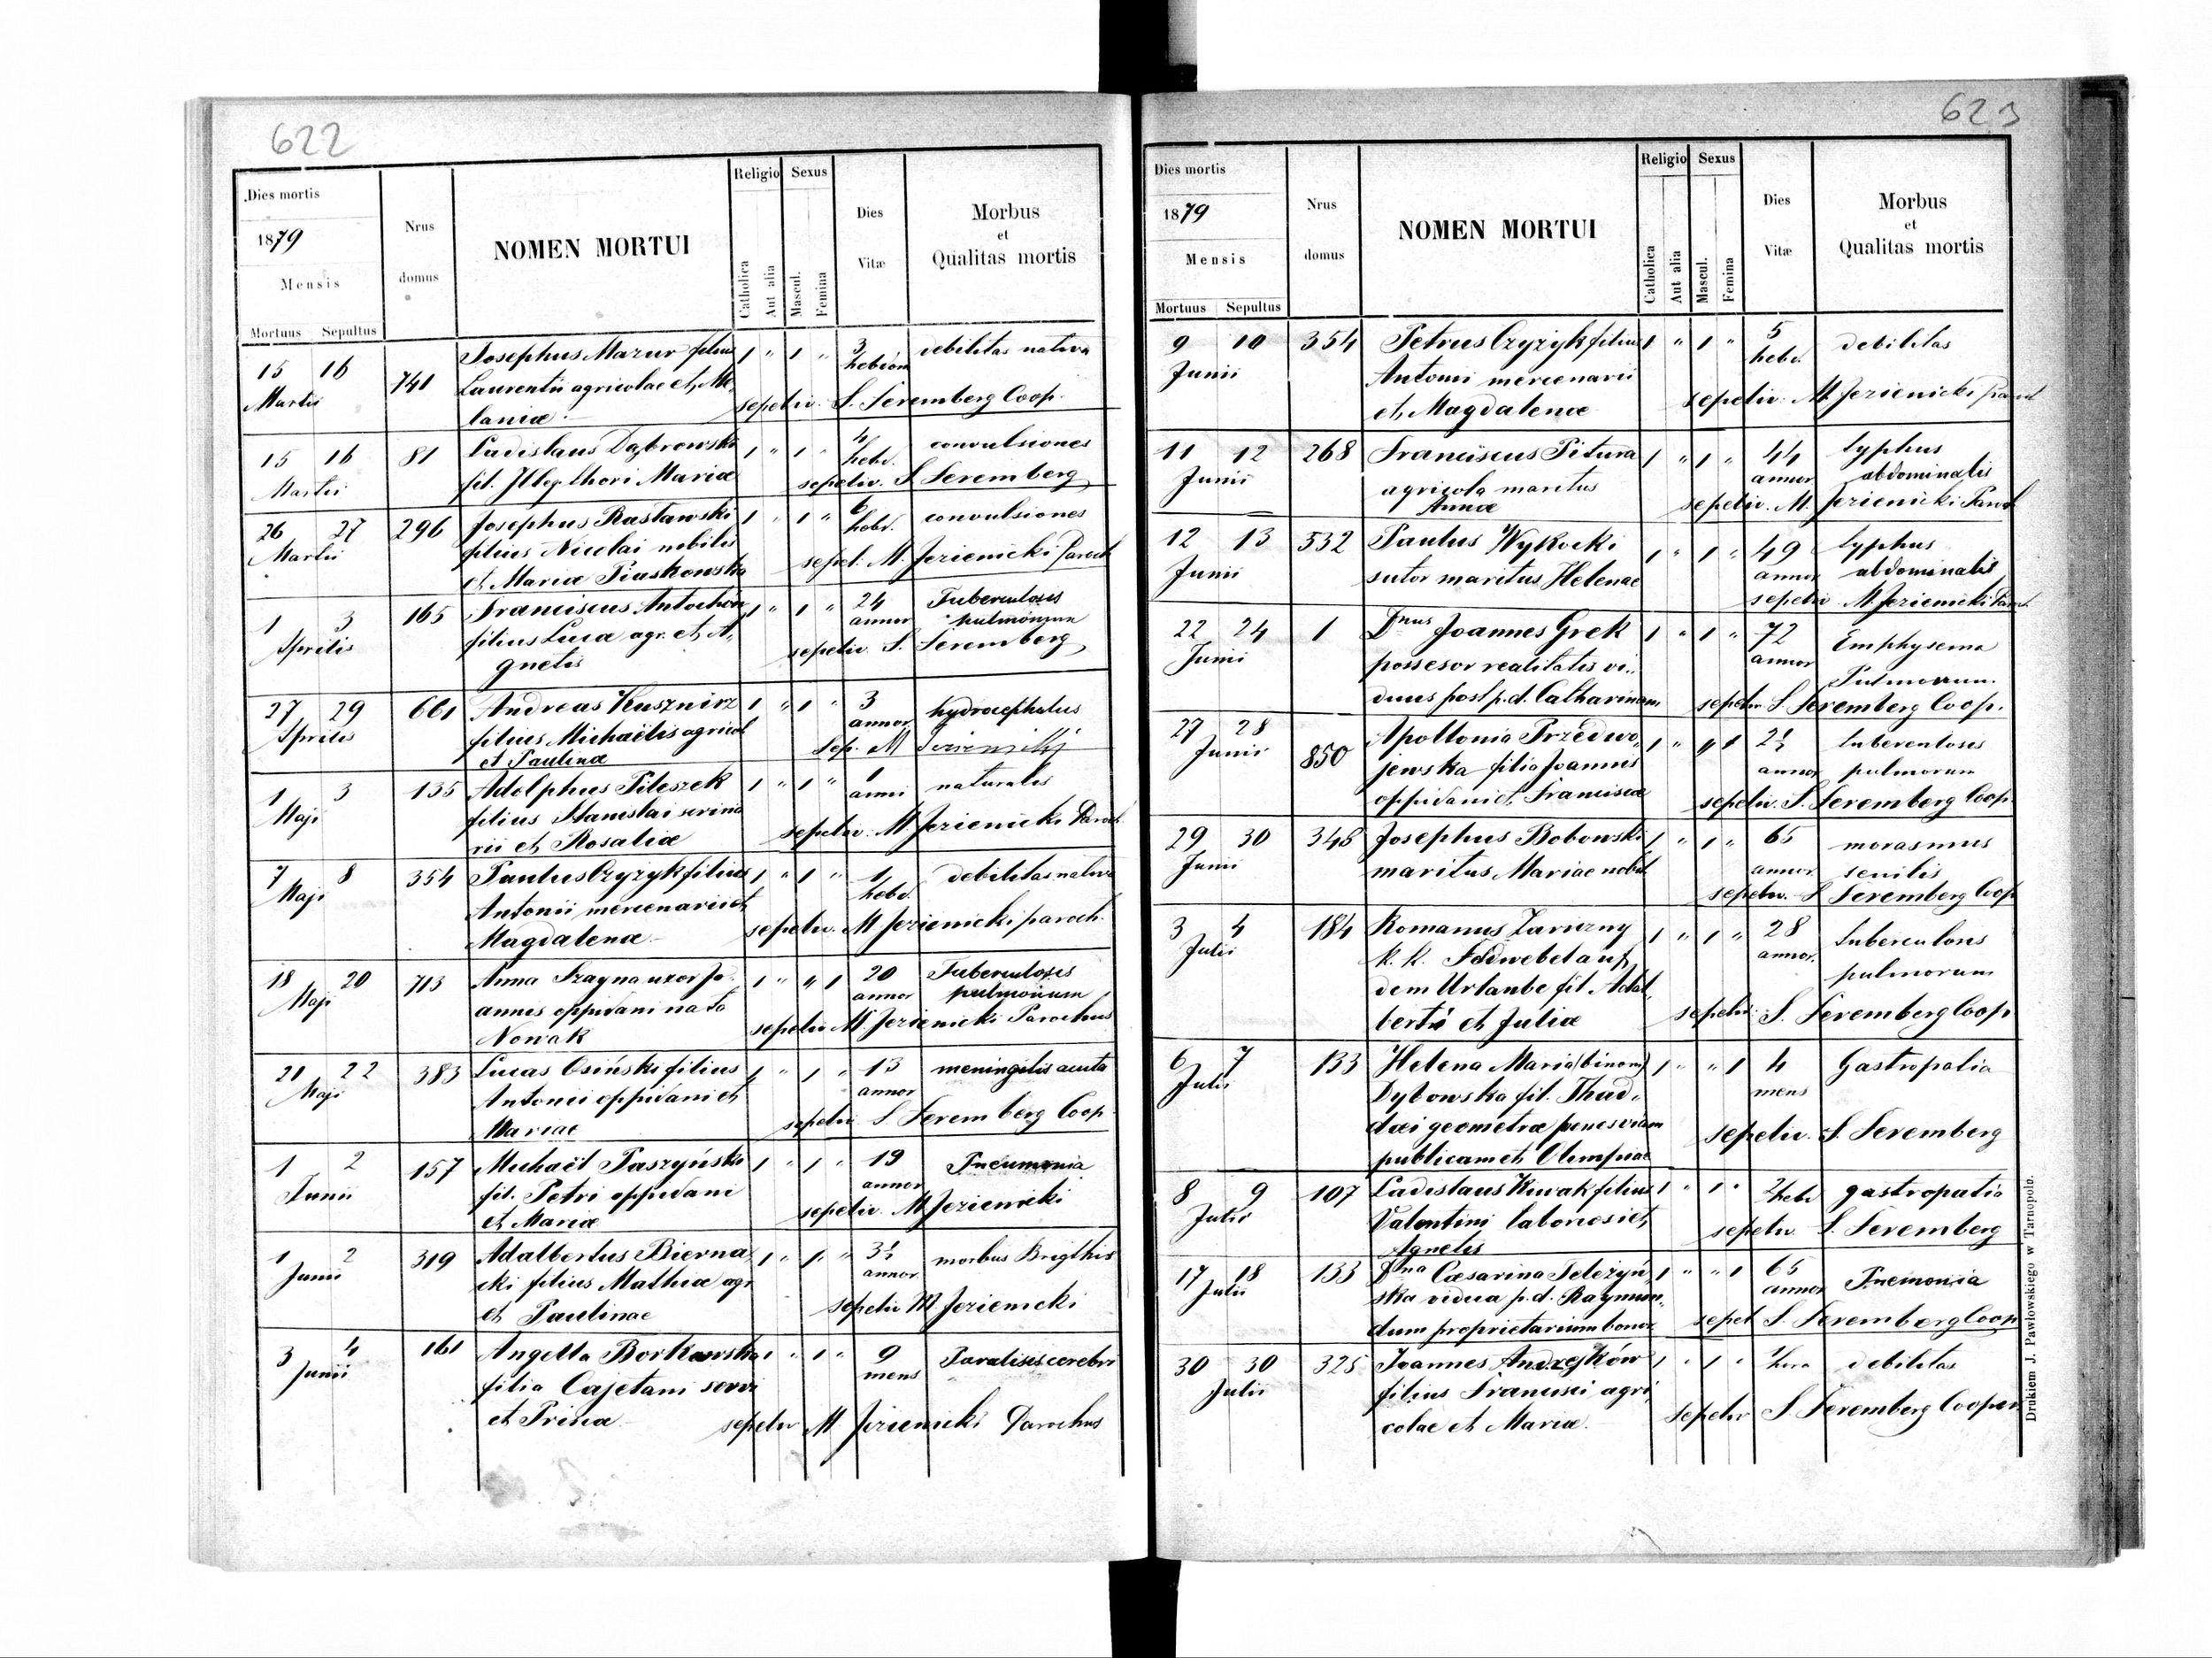 622
Dies mortis
1879
Mensis
Mortuus Sepultus
Nrus
domus
NOMEN MORTUI
Religio
Catholica
Aut alia
Sexus
Mascul.
Femina
Dies
Vitæ
Morbus
et
Qualitas mortis
15 16 Martii 741 Josephus Mazur filius 1 " 1 " 3 debilitas nativa
Laurentii agricolae et Me
laniæ sepeliv. S. Seremberg Coop.
15 16 Martii 81 Ladislaus Dąbrowski 1 " 1 " 4 hebd. convulsiones
fil. Illeg. thori Mariæ sepeliv. S Seremberg
26 27 Martii 296 Josephus Rastawski 1 " 1 " 6 hebd. convulsiones
filius Nicolai nobilis
et Mariæ Piaskowska sepel. M. Jezienicki Paroch
1 3 Aprilis 165 Franciscus Antochów 1 " 1 " 24 annor Tuberculosis pulmonum
filius Lucæ agr. et A,
gnetis sepeliv. S. Seremberg
27 29 Aprilis 661 Andreas Kusznirz 1 " 1 " 3 annor hydrocephalus
filius Michaëlis agricol
et Paulinæ Sep. M Jezienicki
1 3 Maji 135 Adolphus Pileszek 1 " 1 " 1 anni naturalis
filius Stanislai scrina
rii et Rosaliæ sepeliv. M Jezienicki Paroch
7 8 Maji 354 Paulus Czyzyk filius 1 " 1 " 1 hebd. debilitas nativa
Antonii mercenarii et
Magdalenæ sepeliv. M Jezienicki paroch.
18 20 Maji 713 Anna Szayna uxor Jo 1 " " 1 20 annor Tuberculosis pulmonum
annis oppidani nata
Nowak sepeliv M Jezienicki Parochus
21 22 Maji 383 Lucas Osiński filius 1 " 1 " 13 annor meningitis acuta
Antonii oppidani et
Mariae sepeliv S. Seremberg Coop
1 2 Junii 157 Michaël Paszyński 1 " 1 " 19 annor Pneumonia
fil. Petri oppidani
et Mariæ sepeliv. M Jezienicki
1 2 Junii 319 Adalbertus Bierna 1 " 1 " 3½ annor morbus Brigthis
cki filius Mathiæ agr
et Paulinae sepeliv M Jezienicki
3 4 Junii 161 Angella Borkowska 1 " 1 " 9 mens Paralisis cerebri
filia Cajetani servi
et Priscæ sepeliv M Jezienicki Parochus
623
Dies mortis
1879
Mensis
Mortuus Sepultus
Nrus
domus
NOMEN MORTUI
Religio
Catholica
Aut alia
Sexus
Mascul.
Femina
Dies
Vitæ
Morbus
et
Qualitas mortis
9 10 Junii 354 Petrus Czyzyk filius 1 " 1 " 5 hebd. debilitas
Antonii mercenarii
et Magdalenæ sepeliv. M. Jezienicki Paroch
11 12 Junii 268 Franciscus Pitura 1 " 1 " 44 annor typhus abdominalis
agricola maritus
Annæ sepeliv. M. Jezienicki Paroch
12 13 Junii 532 Paulus Wykocki 1 " 1 " 49 annor typhus abdominalis
sutor maritus Helenae sepeliv M. Jezienicki Paroch.
22 24 Junii 1 Dnus Joannes Grek 1 " 1 " 72 annor Emphysema
possesor realitatis vi,, Pulmonum.
duus post p.d. Catharinam sepeliv. S Seremberg Coop.
27 28 Junii 850 Apollonia Przedwo, 1 " " 1 2½ annor tuberculosis
jewska filia Joannis pulmorum
oppidani et Franciscæ sepeliv. S. Seremberg Coop.
29 30 Junii 348 Josephus Bobowski 1 " 1 " 65 annor. morasmus
maritus Mariae nobil senilis
sepeliv. S Seremberg Coop
3 4 Julii 184 Romanus Zarwzny 1 " 1 " 28 annor. tuberculosis
k. k. Feldwebel auf pulmorum
dem Urlaube fil. Adal,
berti et Juliæ sepeliv. S. Seremberg Coop
6 7 Julii 133 Helena Maria (binom) 1 " " 1 4 mens Gastropatia
Dybowska fil. Thad,,
daei geometræ penes viam
publicam et Olimpiae sepeliv. S. Seremberg
8 9 Julii 107 Ladislaus Kuvak filius 1 " 1 " 2 hebd gastropatia
Valentini laboriosi et
Agnetis sepeliv. S. Seremberg
17 18 Julii 133 Dna Cæsarina Teleżyń 1 " " 1 65 annor Pnemonia
ska vidua p.d. Raymun,,
dum proprietarium bonor sepel S. Seremberg Coop
30 30 Julii 325 Joannes Andrejków 1 " 1 " 1 hora debilitas
filius Francisci agri,
colae et Mariæ. sepeliv S Seremberg Cooper.
Drukiem J. Pawłowskiego w Tarnopolu.